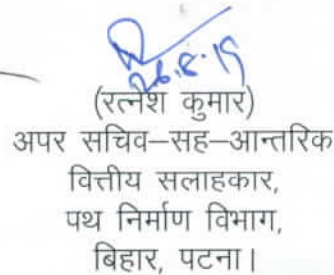 26.8.19
(रत्नेश कुमार)
अपर सचिव–सह–आन्तरिक
वित्तीय सलाहकार,
पथ निर्माण विभाग,
बिहार, पटना।